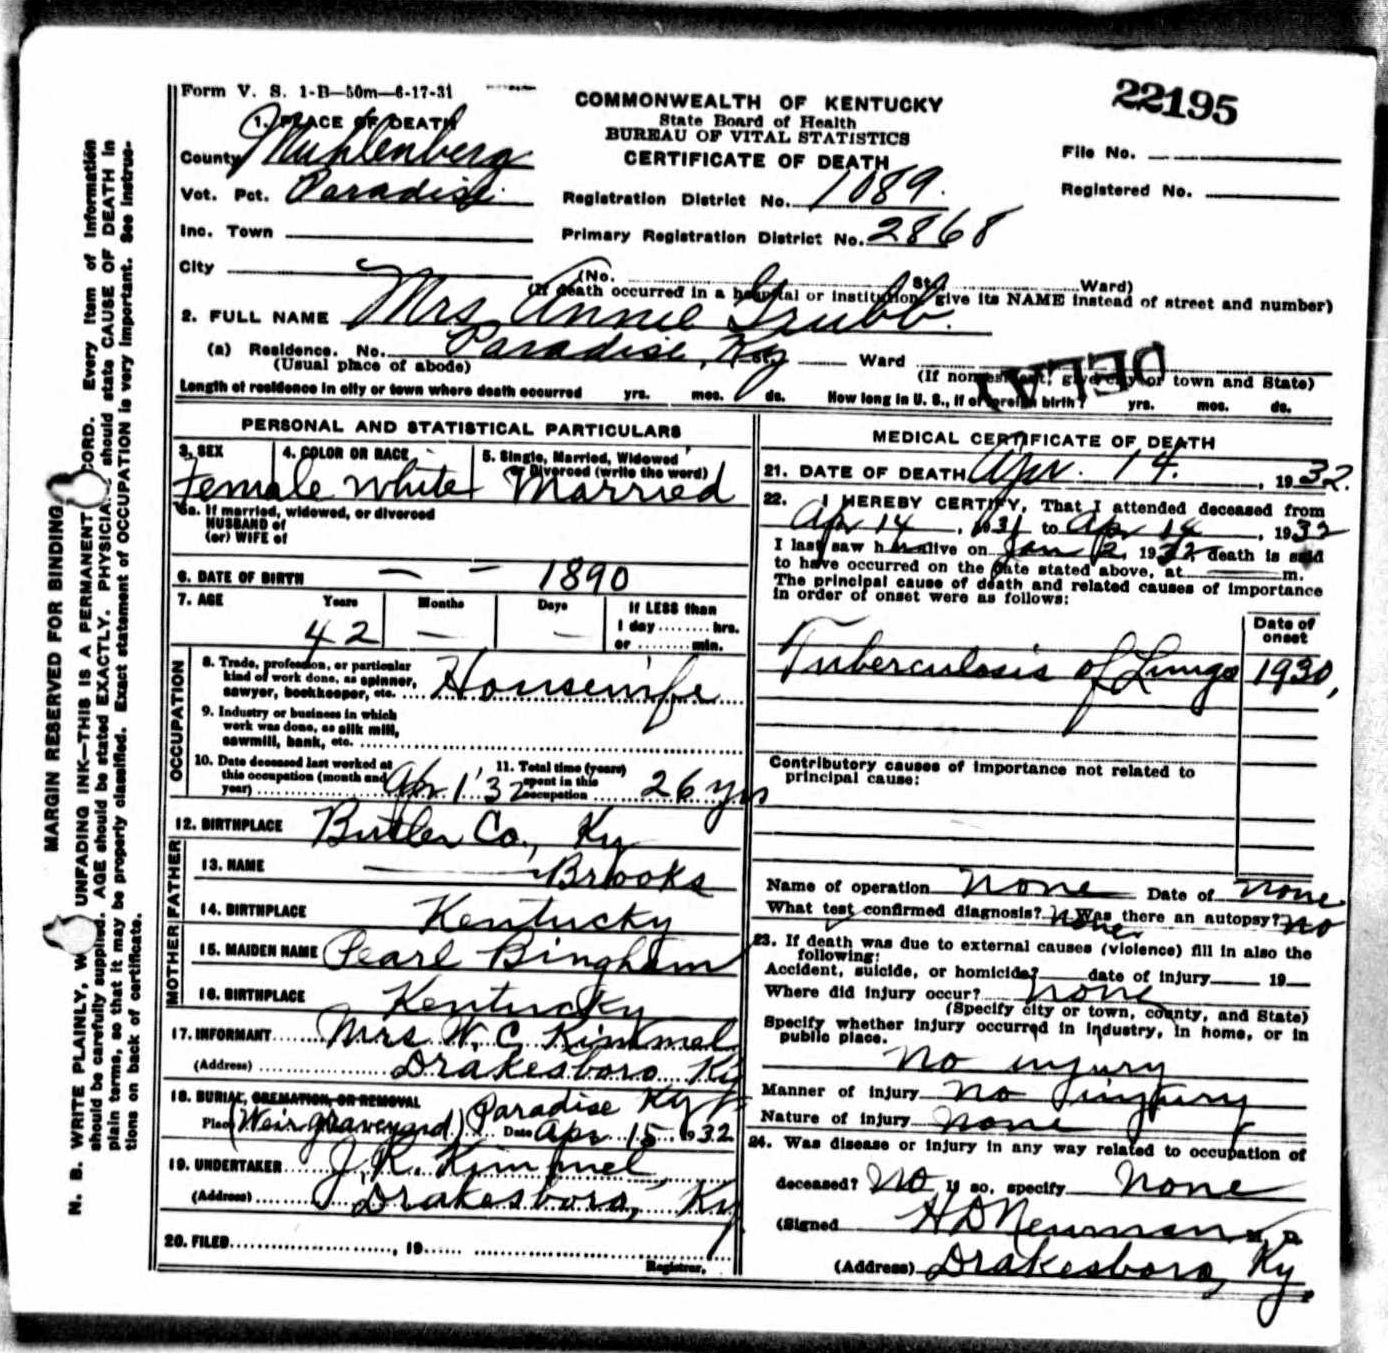 Form V. S. 1-B—50m—6-17-31
22195
COMMONWEALTH OF KENTUCKY
State Board of Health
BUREAU OF VITAL STATISTICS
CERTIFICATE OF DEATH
1. PLACE OF DEATH
County Muhlenberg
Vot. Pct. Paradise
Inc. Town
City
Registration District No. 1089.
Primary Registration District No. 2868
File No.
Registered No.
(No. St. Ward)
(If death occurred in a hospital or institution, give its NAME instead of street and number)
2. FULL NAME Mrs Annie Grubb.
(a) Residence. No. Paradise, Ky St. Ward
(Usual place of abode)
(If nonresident, give city or town and State)
DELAY
Length of residence in city or town where death occurred yrs. mos. ds. How long in U. S., if of foreign birth? yrs. mos. ds.
PERSONAL AND STATISTICAL PARTICULARS
3. SEX Female
4. COLOR OR RACE White
5. Single, Married, Widowed or Divorced (write the word) Married
5a. If married, widowed, or divorced
HUSBAND of
(or) WIFE of
6. DATE OF BIRTH — — 1890
7. AGE Years Months Days If LESS than
1 day ........ hrs.
or ........ min.
42 — —
OCCUPATION
8. Trade, profession, or particular
kind of work done, as spinner,
sawyer, bookkeeper, etc. Housewife
9. Industry or business in which
work was done, as silk mill,
sawmill, bank, etc.
10. Date deceased last worked at
this occupation (month and
year) Apr 1 '32
11. Total time (years)
spent in this
occupation 26 yrs
12. BIRTHPLACE Butler Co., Ky
FATHER
13. NAME — Brooks
14. BIRTHPLACE Kentucky
MOTHER
15. MAIDEN NAME Pearl Bingham
16. BIRTHPLACE Kentucky
17. INFORMANT Mrs W. C. Kimmel
(Address) Drakesboro Ky
18. BURIAL, CREMATION, OR REMOVAL Paradise Ky
Place (Weir graveyard) Date Apr 15 1932
19. UNDERTAKER J. K. Kimmel
(Address) Drakesboro, Ky
20. FILED, 19
Registrar.
MEDICAL CERTIFICATE OF DEATH
21. DATE OF DEATH Apr. 14. , 1932.
22. I HEREBY CERTIFY, That I attended deceased from
Apr 14, 1931 to Ap 14, 1932
I last saw her alive on Jan 2, 1932, death is said
to have occurred on the date stated above, at m.
The principal cause of death and related causes of importance
in order of onset were as follows:
Date of
onset
Tuberculosis of Lungs 1930,
Contributory causes of importance not related to
principal cause:
Name of operation None Date of None
What test confirmed diagnosis? None Was there an autopsy? No
23. If death was due to external causes (violence) fill in also the
following:
Accident, suicide, or homicide? date of injury 19
Where did injury occur? None
(Specify city or town, county, and State)
Specify whether injury occurred in industry, in home, or in
public place.
No injury
Manner of injury No injury
Nature of injury None
24. Was disease or injury in any way related to occupation of
deceased? No If so, specify None
(Signed H D Newman M. D.
(Address) Drakesboro, Ky.
MARGIN RESERVED FOR BINDING
N. B. WRITE PLAINLY, W UNFADING INK—THIS IS A PERMANENT CORD. Every item of information
should be carefully supplied. AGE should be stated EXACTLY. PHYSICIA should state CAUSE OF DEATH in
plain terms, so that it may be properly classified. Exact statement of OCCUPATION is very important. See instruc-
tions on back of certificate.